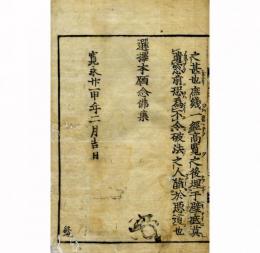 之甚也庶幾一經高覽之後埋于壁底莫
遺窓前恐為不令破法之人墮於惡道也
選擇本願念佛集
寛永廿一甲申二月吉日